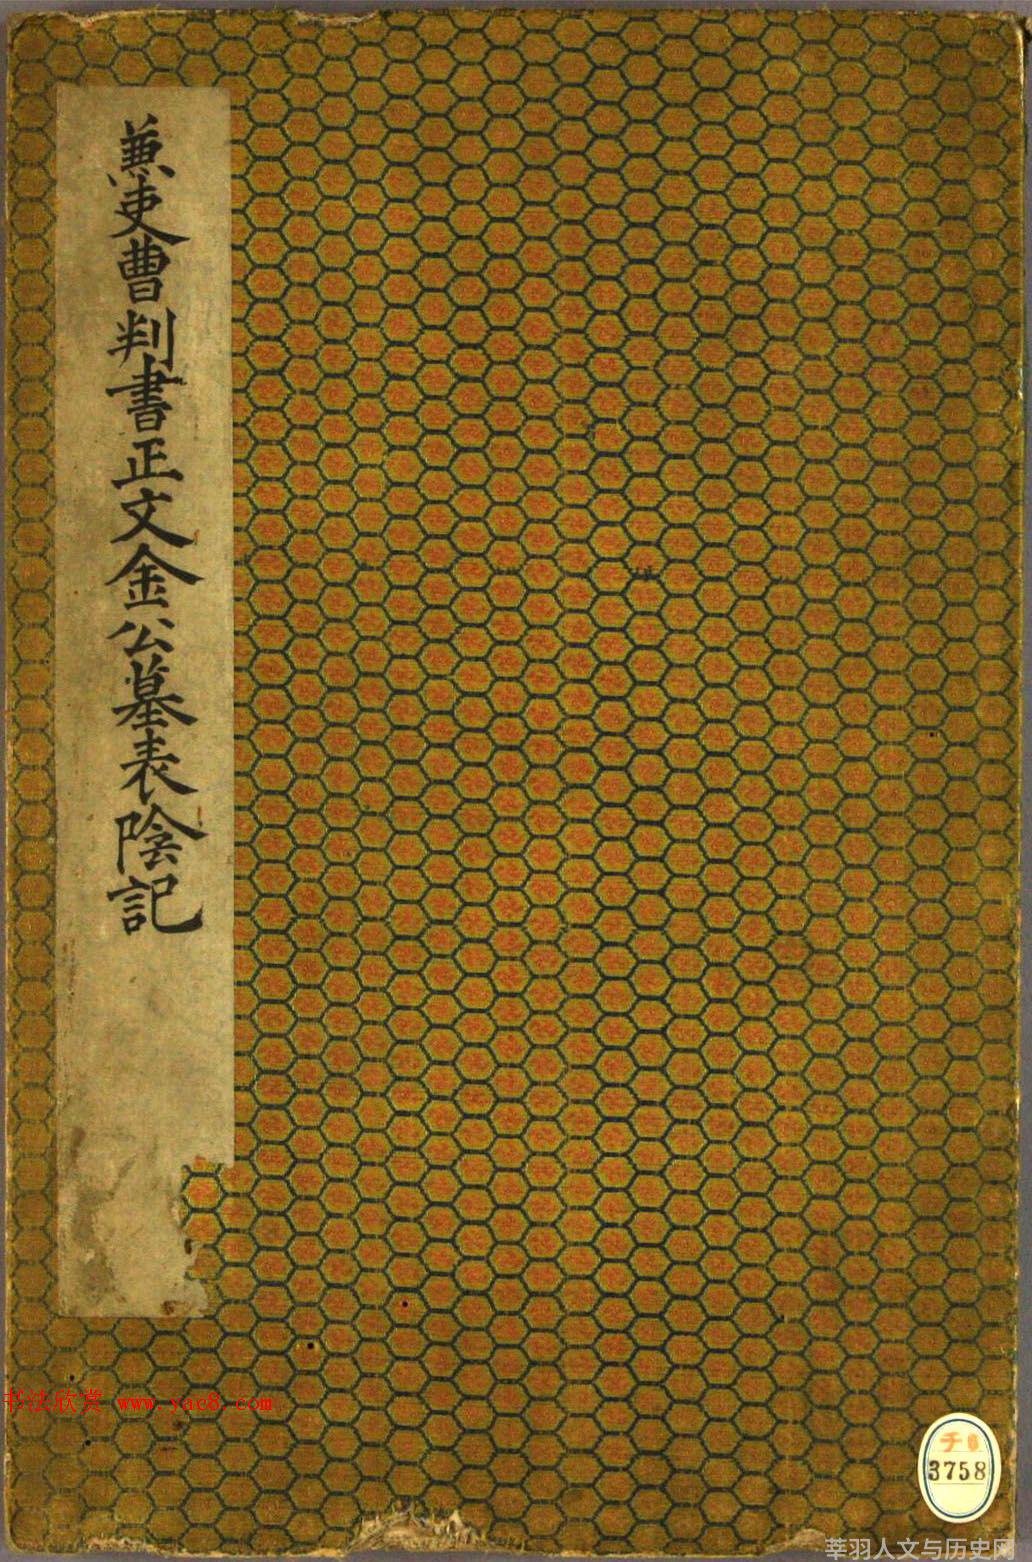 兼吏曹判書正文金公墓表陰記
书法欣赏 www.yac8.com
チ6
3758
莘羽人文与历史网